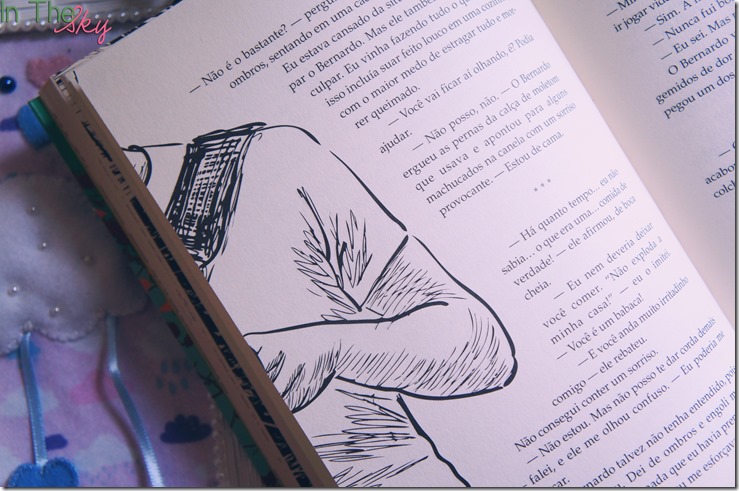 In The Sky
— Não é o bastante? — pergu
ombros, sentando em uma cade
Eu estava cansado da sit
par o Bernardo. Mas ele tamb
culpar. Eu vinha fazendo tudo o q
isso incluía suar feito louco em uma comin
com o maior medo de estragar tudo e mor-
rer queimado.
— Você vai ficar aí olhando, é? Podia
ajudar.
— Não posso, não. — O Bernardo
ergueu as pernas da calça de moletom
que usava e apontou para alguns
machucados na canela com um sorriso
provocante. — Estou de cama.
***
— Há quanto tempo... eu não
sabia... o que era uma... comida de
verdade! — ele afirmou, de boca
cheia.
— Eu nem deveria deixar
você comer. “Não exploda a
minha casa!” — eu o imitei.
— Você é um babaca!
— E você anda muito irritadinho
comigo — ele rebateu.
Não consegui conter um sorriso.
— Não estou. Mas não posso te dar corda demais
— falei, e ele me olhou confuso. — Eu poderia me
ernardo talvez não tenha entendido, poi
Dei de ombros e engoli m
nada que eu havia pro
ir jogar video
— Sim. A m
— Nunca fui bo
— Eu sei. Mas
O Bernardo v
gemidos de dor
pegou um dos
acabo
colch